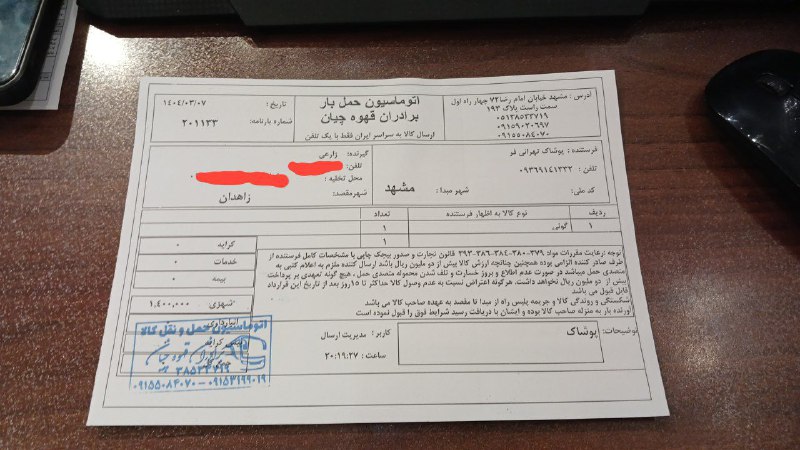 آدرس : مشهد خیابان امام رضا ۷۲ چهار راه اول
سمت راست پلاک ۱۹۳
۰۵۱۳۸۵۳۳۷۱۹
۰۹۱۵۹۰۲۰۶۹۷
۰۹۱۵۵۰۸۴۰۷۰
اتوماسیون حمل بار
برادران قهوه چیان
ارسال کالا به سراسر ایران فقط با یک تلفن
تاریخ : ۱۴۰۴/۰۳/۰۷
شماره بارنامه: ۲۰۱۱۳۳
فرستنده : پوشاک تهرانی فو
تلفن : ۰۹۳۶۹۱۴۱۳۳۲
کد ملی:
شهر مبدا : مشهد
گیرنده: زارعی
تلفن:
محل تخلیه :
شهرمقصد: زاهدان
ردیف نوع کالا به اظهار فرستنده تعداد
۱ گونی ۱
۱
توجه :رعایت مقررات مواد ۳۷۹-۳۸۰-۳۸۴-۳۸۶-۳۹۳ قانون تجارت و صدور بیجک چاپی با مشخصات کامل فرستنده از
طرف صادر کننده الزامی بوده همچنین چنانچه ارزش کالا بیش از دو ملیون ریال باشد ارسال کننده ملزم به اعلام کتبی به
متصدی حمل میباشد در صورت عدم اطلاع و بروز خسارت و تلف شدن محموله متصدی حمل ، هیچ گونه تعهدی بر پرداخت
بیش از دو ملیون ریال نخواهد داشت. هرگونه اعتراض نسبت به عدم وصول کالا حداکثر تا ۱۵روز بعد از تاریخ این قرارداد
قابل قبول می باشد
شکستگی و روندگی کالا و جریمه پلیس راه از مبدا تا مقصد به عهده صاحب کالا می باشد
آورنده بار به منزله صاحب کالا بوده و ایشان با دریافت رسید شرایط فوق را قبول نموده است
کرایه ۰
خدمات ۰
بیمه ۰
شهری: ۱,۴۰۰,۰۰۰
انبارداری:
پس کرایه
توضیحات: پوشاک
کاربر : مدیریت ارسال
ساعت : ۲۰:۱۹:۲۷
اتوماسیون حمل و نقل کالا
برادران قهوه چیان
۳۸۵۳۳۷۱۹
۰۹۱۵۵۰۸۴۰۷۰-۰۹۱۵۳۱۹۹۰۱۹